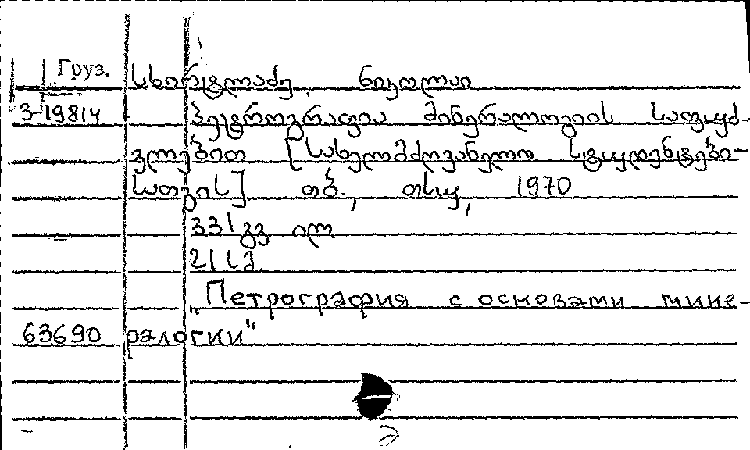 Груз. სხირტლაძე, ნიკოლაი
3-19814 პეტროგრაფია მინერალოგიის საფუძ-
ვლებით [სახელმძღვანელო სტუდენტები-
სათვის] თბ., თსუ, 1970
331 გვ ილ
„Петрография с основами мине-
63690 ралогии"